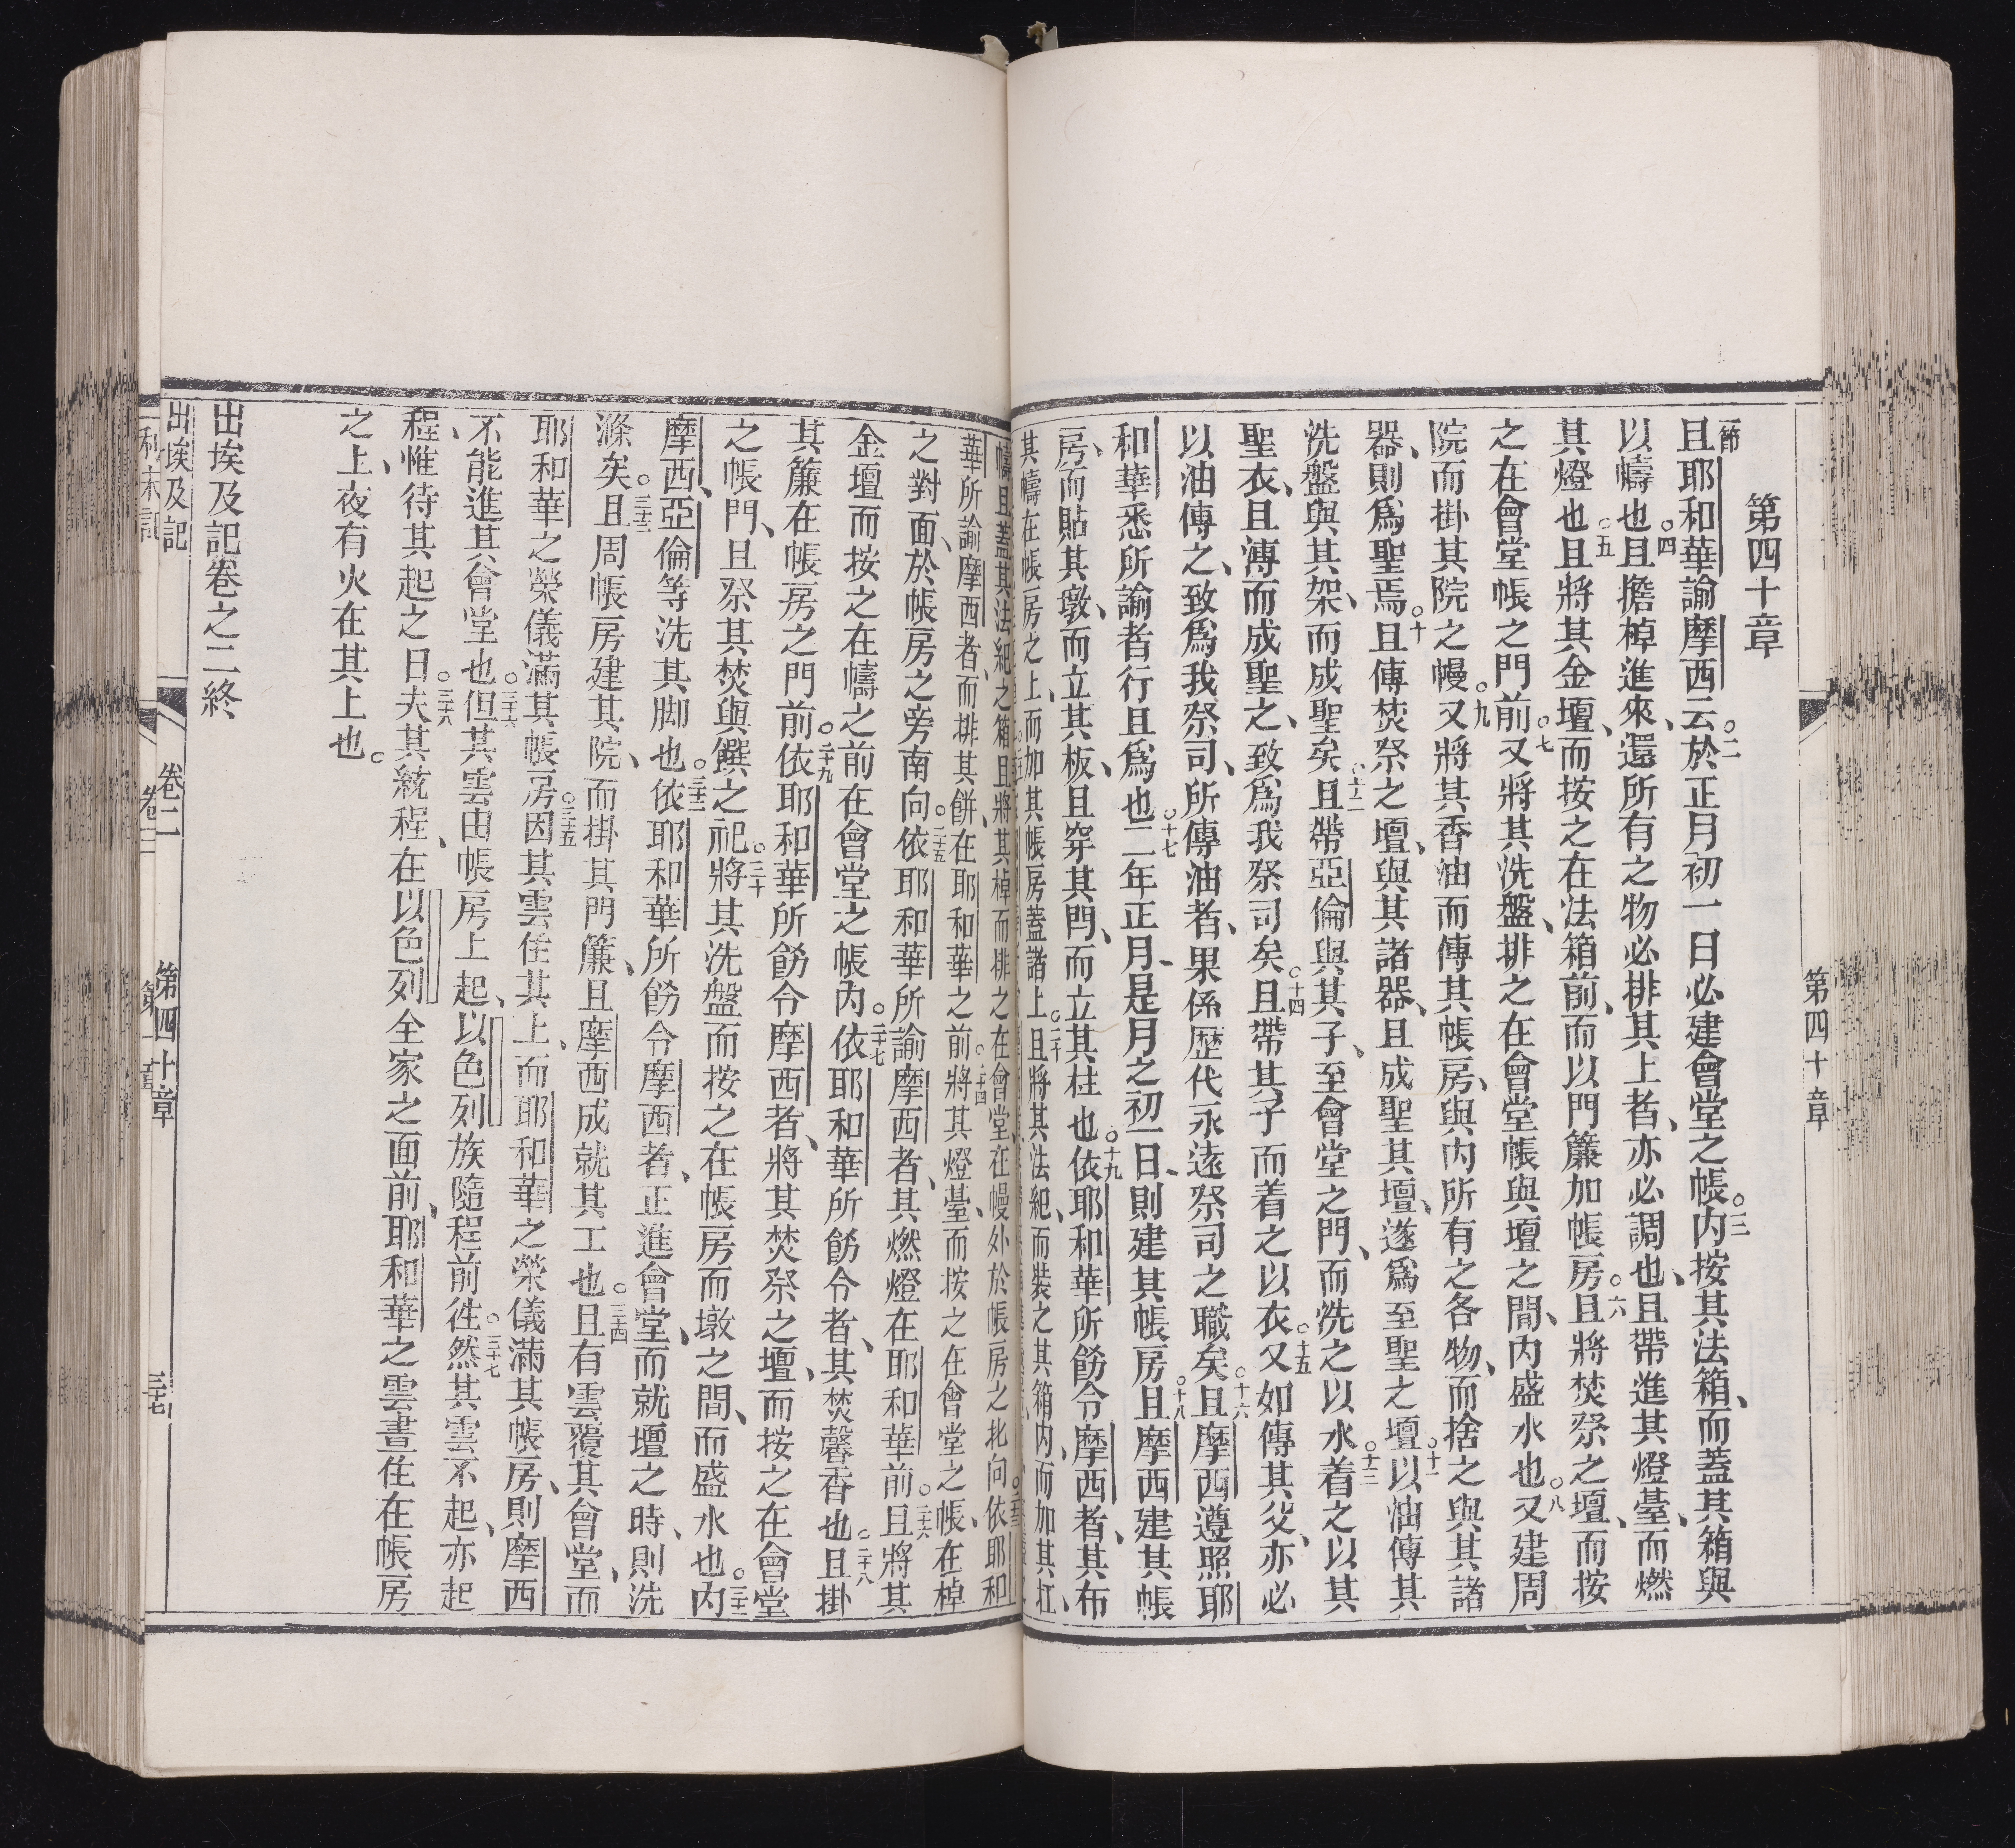 第四十章
一節
且耶和華諭摩西云○二於正月初一日必建會堂之帳○三內按其法箱、而蓋其箱與
以幬也○四且擔棹進來、還所有之物必排其上者、亦必調也、且帶進其燈臺、而燃
其燈也○五且將其金壇、而按之在法箱前、而以門簾加帳房○六且將焚祭之壇、而按
之在會堂帳之門前○七又將其洗盤、排之在會堂帳與壇之間、內盛水也○八又建周
院而掛其院之幔○九又將其香油而傳其帳房、與內所有之各物、而捨之與其諸
器、則為聖焉○十且傳焚祭之壇、與其諸器、且成聖其壇、遂為至聖之壇○十一以油傳其
洗盤與其架、而成聖矣○十二且帶亞倫與其子、至會堂之門、而洗之以水○十三着之以其
聖衣、且漙而成聖之、致為我祭司矣○十四且帶其子而着之以衣○十五又如傳其父、亦必
以油傳之、致為我祭司、所傳油者、果係歷代永遠祭司之職矣○十六且摩西遵照耶
和華悉所諭者行且為也○十七二年正月、是月之初一日、則建其帳房○十八且摩西建其帳
房、而貼其墩、而立其板、且穿其閂、而立其柱也○十九依耶和華所飭令摩西者、其布
其幬在帳房之上、而加其帳房蓋諸上○二十且將其法紀、而裝之其箱內、而加其扛、
幬且蓋其法紀之箱且將其棹而排之在會堂在幔外於帳房之北向○二十三依耶和
華所諭摩西者、而排其餅、在耶和華之前○二十四將其燈臺、而按之在會堂之帳、在棹
之對面、於帳房之旁南向○二十五依耶和華所諭摩西者、其燃燈在耶和華前○二十六且將其
金壇而按之在幬之前在會堂之帳內○二十七依耶和華所飭令者、其焚馨香也○二十八且掛
其簾在帳房之門前○二十九依耶和華所飭令摩西者、將其焚祭之壇、而按之在會堂
之帳門、且祭其焚與饌之祀○三十將其洗盤而按之在帳房而墩之間、而盛水也○三十一內
摩西、亞倫等洗其脚也○三十二依耶和華所飭令摩西者、正進會堂、而就壇之時、則洗
滌矣○三十三且周帳房建其院、而掛其門簾、且摩西成就其工也○三十四且有雲覆其會堂、而
耶和華之榮儀滿其帳房○三十五因其雲住其上、而耶和華之榮儀滿其帳房、則摩西
不能進其會堂也○三十六但其雲由帳房上起、以色列族隨程前往○三十七然其雲不起、亦起
程、惟待其起之日○三十八夫其統程、在以色列全家之面前、耶和華之雲晝住在帳房
之上、夜有火在其上也○
出埃及記卷之二終
第四十章
出埃及記 卷二 第四十章 三十七
利未記 卷三 第一章